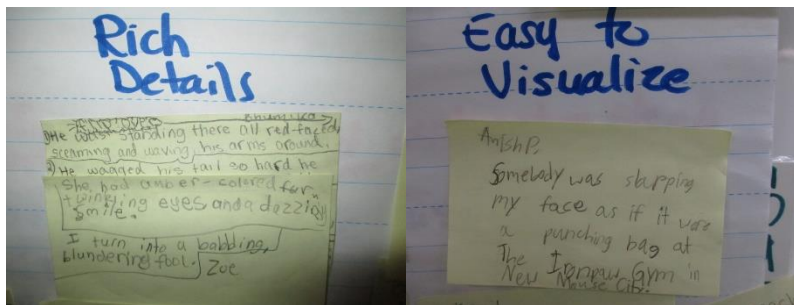 Rich
Details
Bhumika
He was standing there all red-faced,
screaming and waving his arms around.
He wagged his tail so hard he
She had amber-colored fur,
twinkling eyes and a dazzling
smile.
I turn into a babbling,
blundering fool.
Zoe
Easy to
Visualize
Anish P.
Somebody was slapping
my face as if it were
a punching bag at
The Ironpaw Gym in
New Mouse City.